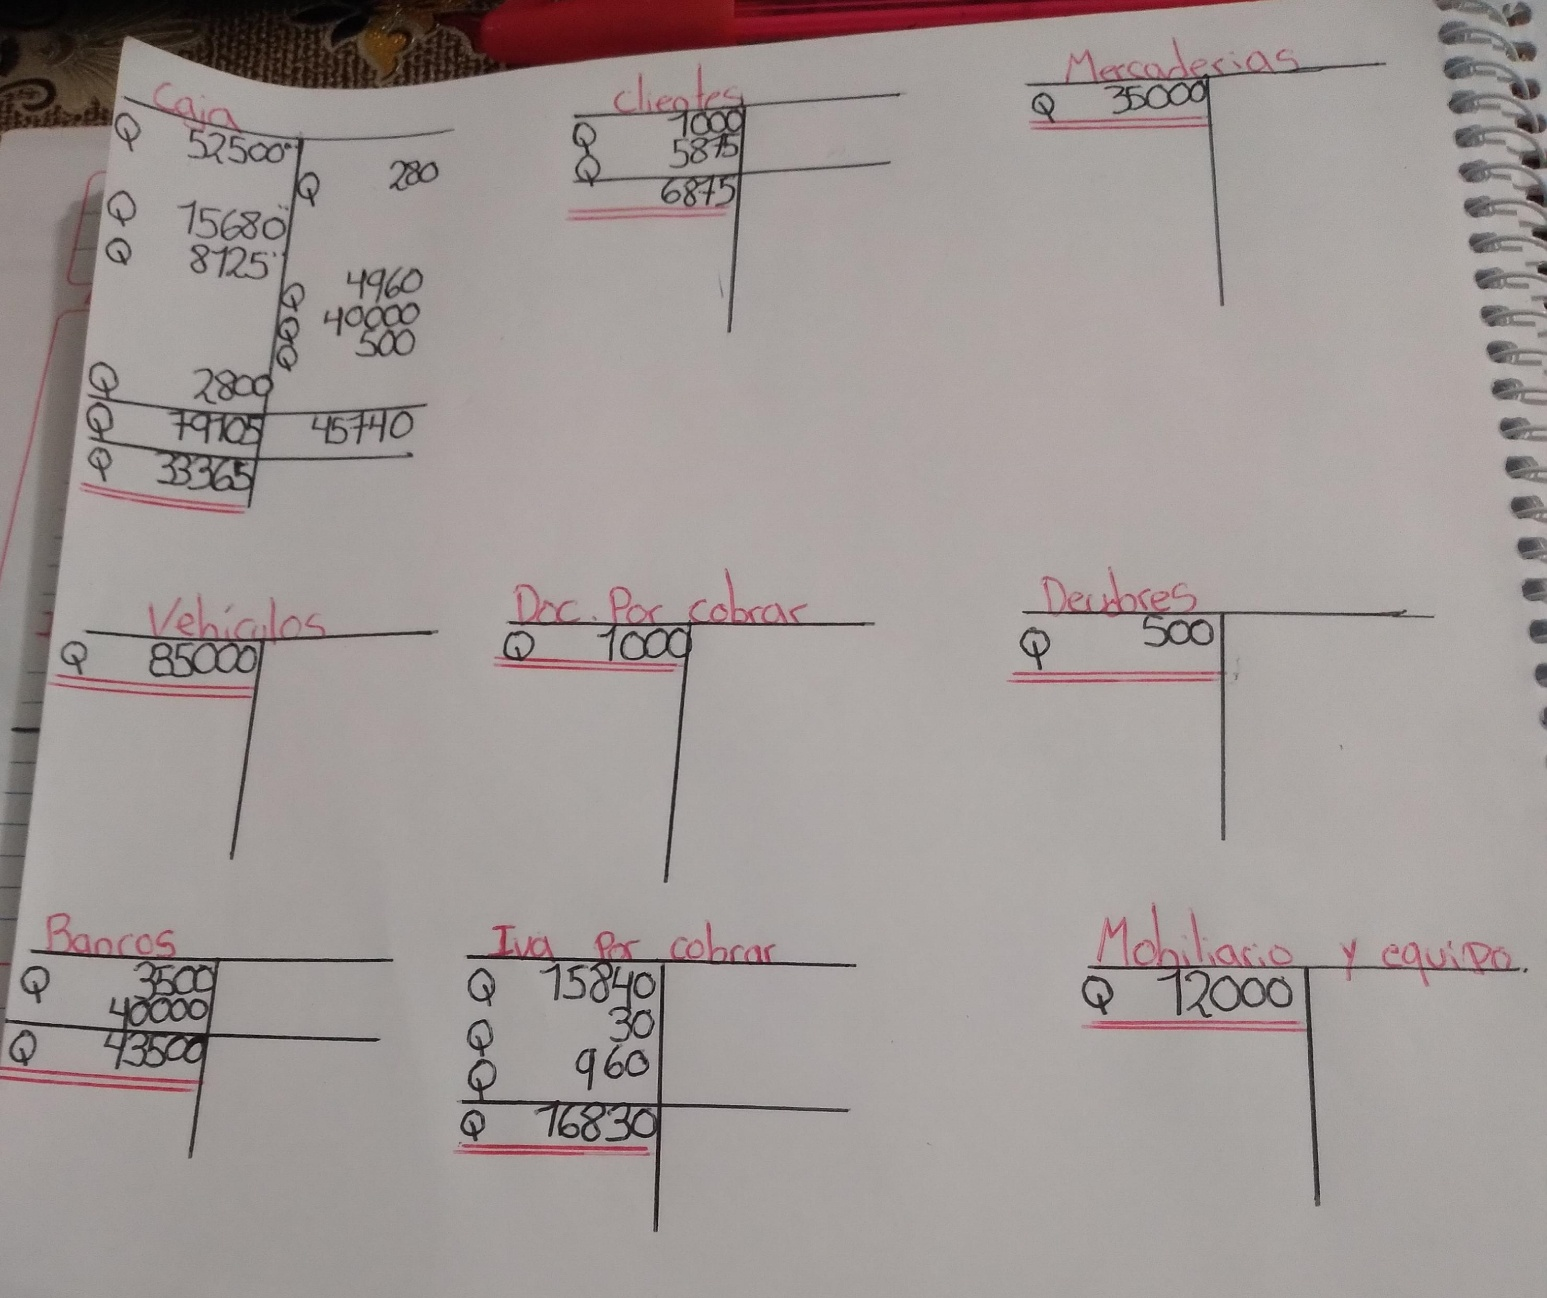 Caja
Q 52500
Q 280
Q 15680
Q 8125
Q 4960
Q 40000
Q 500
Q 2800
Q 79105 45740
Q 33365
Clientes
Q 1000
Q 5875
6875
Mercaderias
Q 35000
Vehiculos
Q 85000
Doc. Por cobrar
Q 1000
Deudores
Q 500
Bancos
Q 3500
40000
Q 43500
Iva Por cobrar
Q 15840
Q 30
Q 960
Q 16830
Mobiliario y equipo.
Q 12000